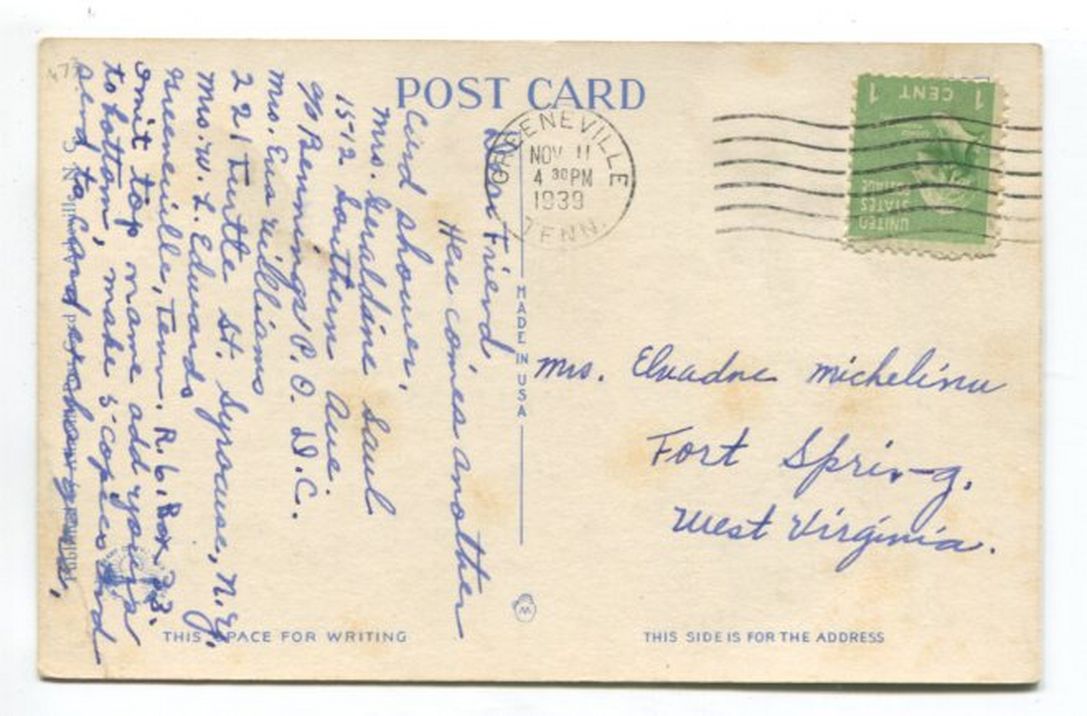 POST CARD
GREENEVILLE
NOV 11
4 30 PM
1939
TENN.
1 CENT 1
UNITED
STATES
POSTAGE
Dear Friend
Here comes another
Card shower,
Mrs. Geraldine Saul
1512 Southern Ave.
% Bennings P.O. D.C.
Mrs. Eua Williams
221 Tuttle St. Syracuse, N.Y.
Mrs. W. L. Edwards
Greeneville, Tenn. R.6. Box 33.
Omit top name add yours
to bottom, make 5 copies and
send to Card exchange
MADE IN USA
Mrs. Elvadne Michelinu
Fort Spring,
West Virginia.
W
THIS SPACE FOR WRITING
THIS SIDE IS FOR THE ADDRESS